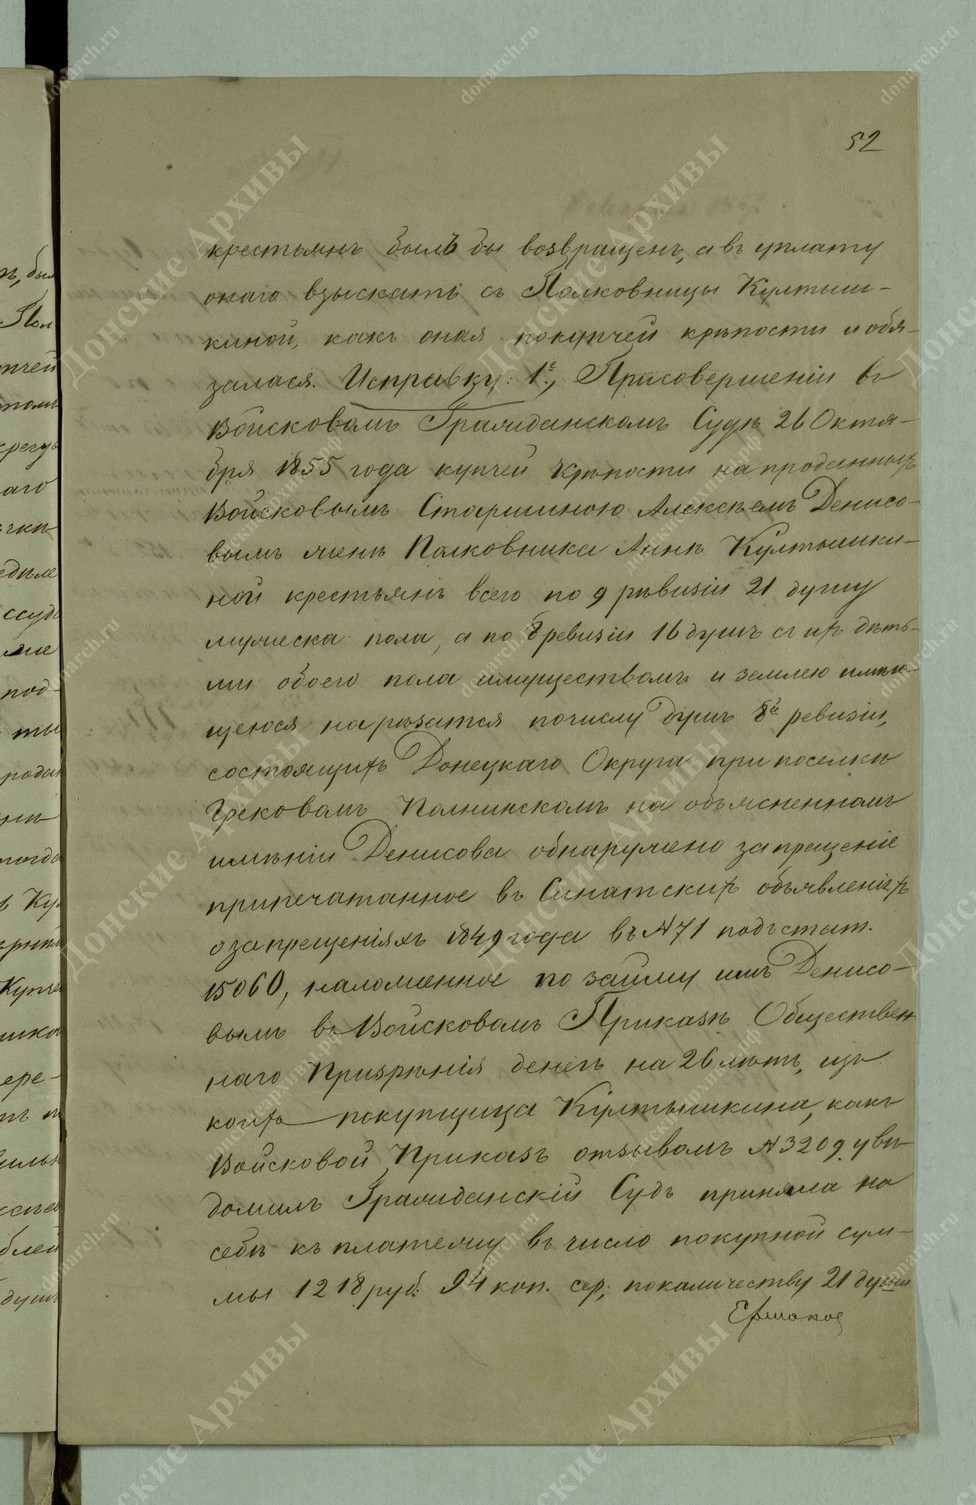 52
крестьянъ былъ бы возвращенъ, а въ уплату
онаго взыскать съ Полковницы Култыш-
киной, какъ оная покупчей крѣпости и обя-
залася. Исправку: 1е, При совершеніи въ
Войсковомъ Гражданскомъ Судѣ 26 Октя-
бря 1855 года купчей крѣпости на проданныхъ
Войсковымъ Старшиною Алексѣемъ Денисо-
вымъ женѣ Полковника Аннѣ Култышки-
ной крестьянъ всего по 9 ревизіи 21 душу
мужеска пола, а по 8 ревизіи 16 душъ съ ихъ дѣтъ-
ми обоего пола имуществомъ и землею имѣю-
щеюся нарѣзатся по числу душъ 8й ревизіи,
состоящихъ Донецкаго Округа при поселкѣ
Грековомъ на объясненномъ
имѣніи Денисова обнаружено запрещеніе
припечатанное въ Сенатскихъ объявленіяхъ
о запрещеніяхъ 1849 года въ №71 подъ стат.
15060, наложенное по займу имъ Денисо-
вымъ въ Войсковомъ Приказѣ Обществен
наго Призрѣнія денегъ на 26 лѣтъ, изъ
коихъ покупщица Култышкина, какъ
Войсковой Приказъ отзывомъ №3209 уви-
домилъ Гражданскій Судъ приняла на
себя къ платежу въ число покупной сум-
мы 1218 руб. 94 коп. сер; по каличеству 21 души
Донские Архивы
donarch.ru